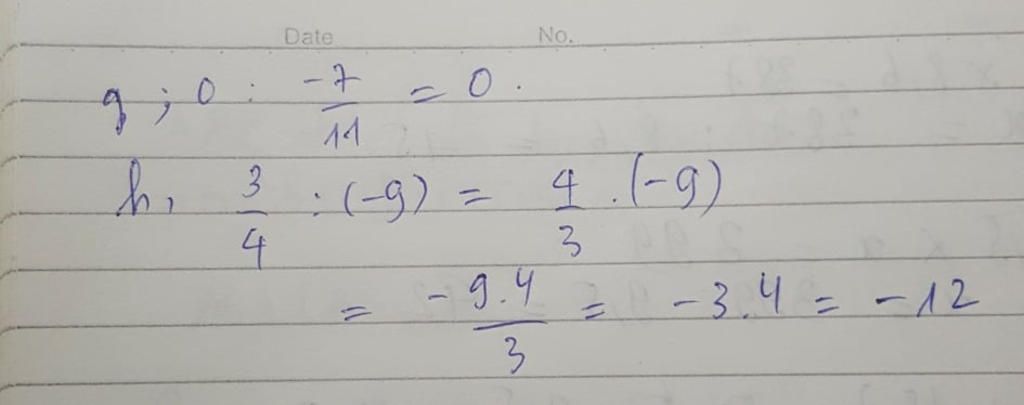 Date No.
g ; 0 : -7/11 = 0 .
h, 3/4 : (-9) = 4/3 . (-9)
= -9.4/3 = -3.4 = -12